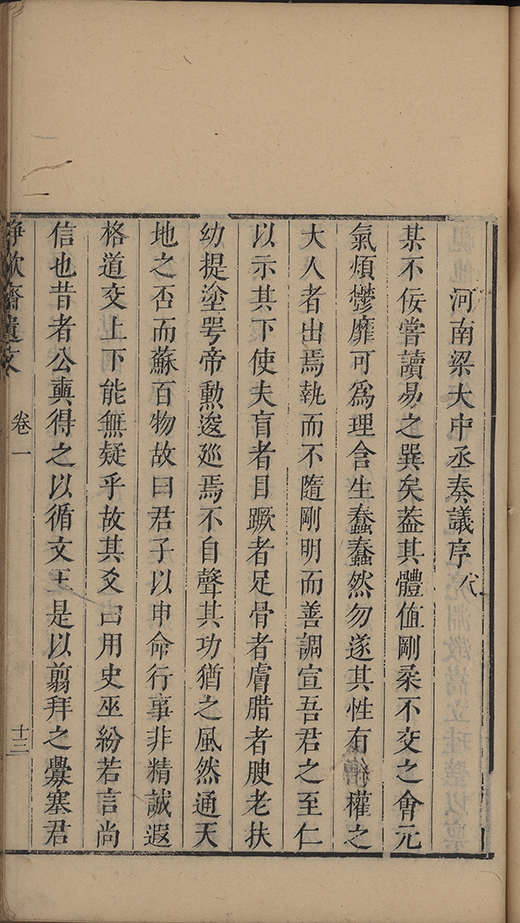 河南梁大中丞奏議序代
某不佞嘗讀易之巽矣葢其體值剛柔不交之會元
氣煩鬱靡可爲理含生蠢蠢然勿遂其性有權之
大人者出焉執而不隨剛明而善調宣吾君之至仁
以示其下使夫盲者目蹶者足骨者膚腊者腴老扶
幼提塗咢帝勳逡廵焉不自聲其功猶之風然通天
地之否而蘇百物故曰君子以申命行事非精誠遐
格道交上下能無疑乎故其爻曰用史巫紛若言尚
信也昔者公奭得之以循文王是以翦拜之釁塞君
齋遺文 卷一 十三